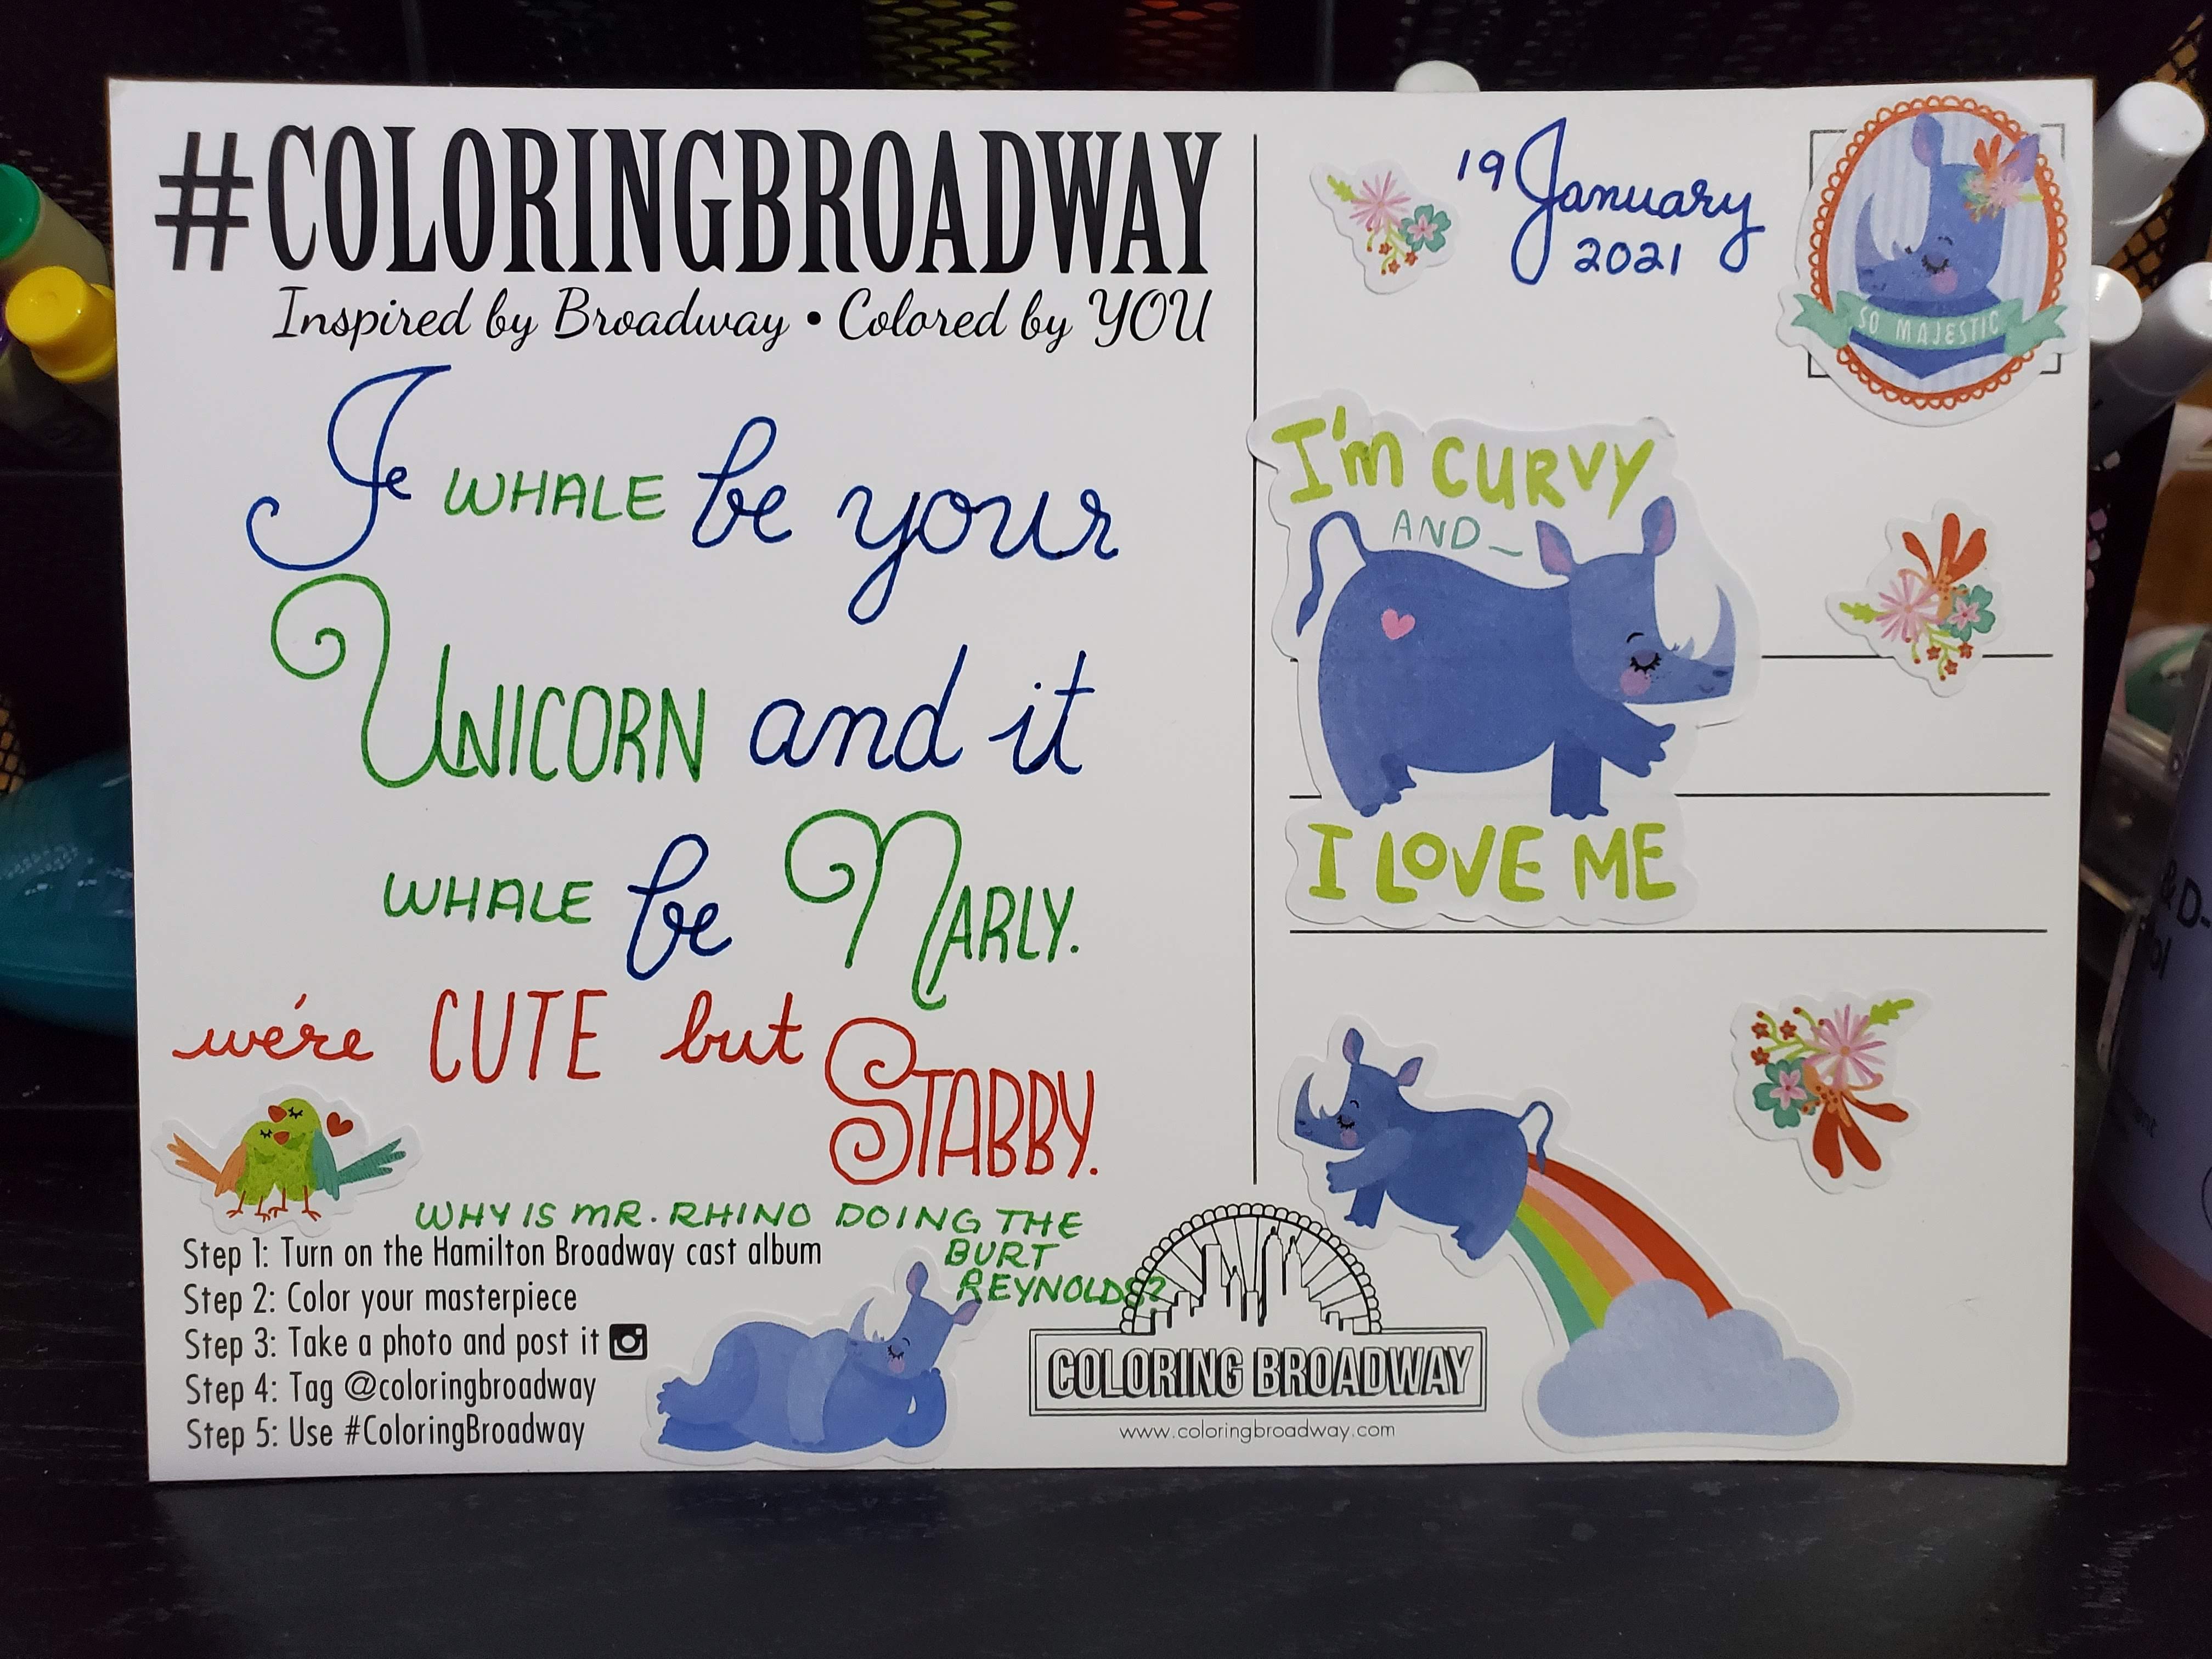 #COLORINGBROADWAY
Inspired by Broadway • Colored by YOU
Je WHALE be your
UNICORN and it
WHALE be NARLY.
we're CUTE but
STABBY.
WHY IS MR. RHINO DOING THE
BURT
REYNOLDS?
Step 1: Turn on the Hamilton Broadway cast album
Step 2: Color your masterpiece
Step 3: Take a photo and post it
Step 4: Tag @coloringbroadway
Step 5: Use #ColoringBroadway
COLORING BROADWAY
www.coloringbroadway.com
19 January
2021
SO MAJESTIC
I'm CURVY
AND
I LOVE ME